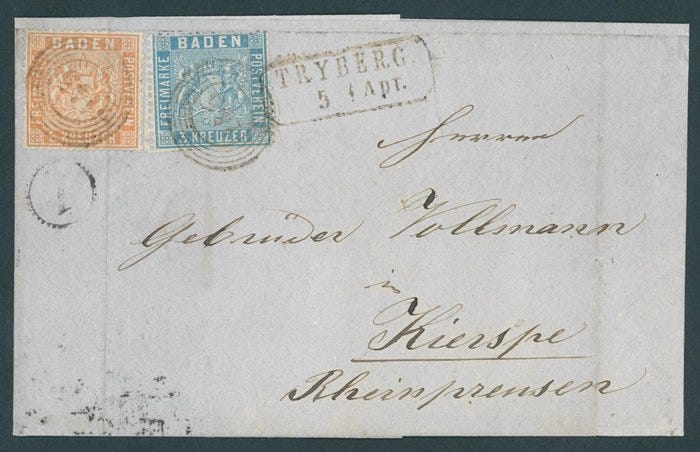 BADEN
FREIMARKE
POSTVEREIN
KREUZER
BADEN
FREIMARKE
POSTVEREIN
3 KREUZER
TRYBERG.
5 Apr.
Herren
Gebrüder Vollmann
in
Kierspe
Rheinpreusen